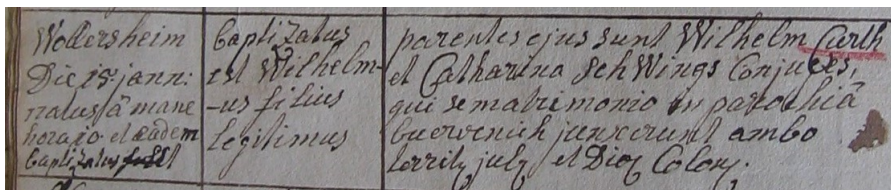 Wollersheim
Die 15 jann:
natus â mane
hora 10 et eadem
baptizatus
baptizatus
est Wilhelm-
-us filius
legitimus
parentes ejus sunt Wilhelm Curth
et Catharina Schwings Conjuges,
qui se matrimonio in parochiâ
buervenich junxerunt ambo
territ. jul. et Dioc. Colon.